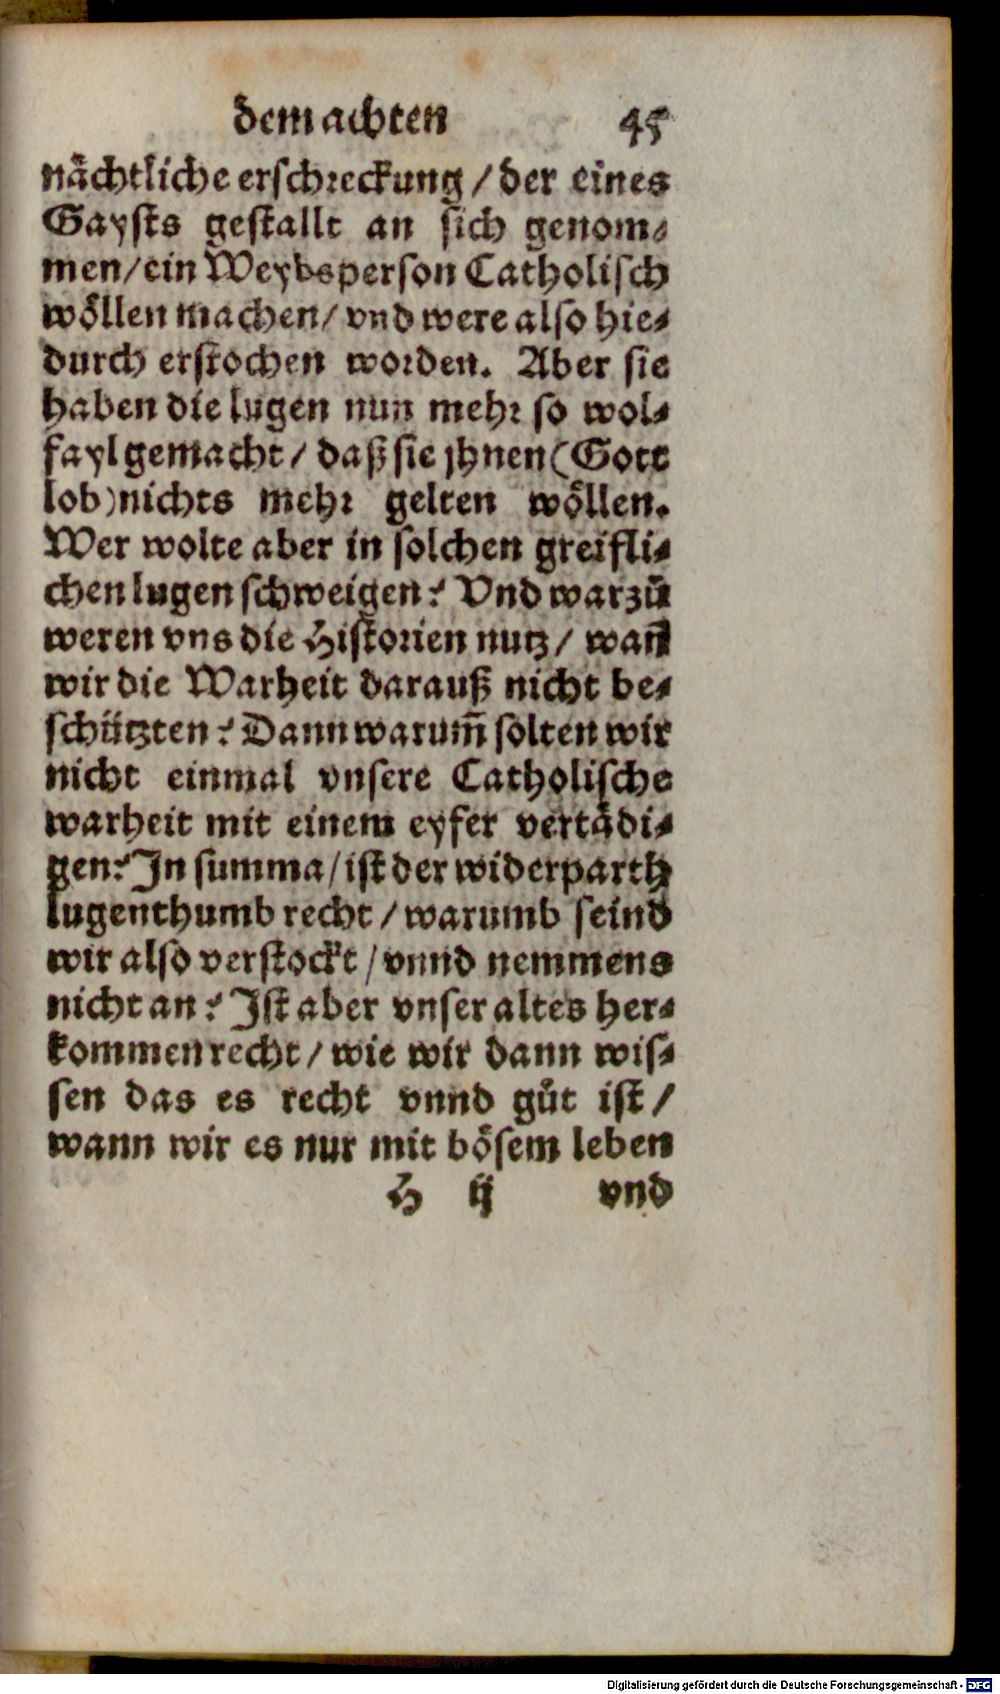 dem achten 45
nächtliche erschreckung / der eines
Gaysts gestallt an sich genom⸗
men / ein Weybsperson Catholisch
wöllen machen / vnd were also hie⸗
durch erstochen worden. Aber sie
haben die lugen nun mehr so wol⸗
fayl gemacht / daß sie jhnen (Gott
lob) nichts mehr gelten wöllen.
Wer wolte aber in solchen greifli⸗
chen lugen schweigen? Vnd warzů
weren vns die Historien nutz / wañ
wir die Warheit darauß nicht be⸗
schützten? Dann warum̃ solten wir
nicht einmal vnsere Catholische
warheit mit einem eyfer vertädi⸗
gen? In summa / ist der widerparth
lugenthumb recht / warumb seind
wir also verstockt / vnnd nemmens
nicht an? Ist aber vnser altes her⸗
kommen recht / wie wir dann wis⸗
sen das es recht vnnd gůt ist /
wann wir es nur mit bösem leben
H ij vnd
Digitalisierung gefördert durch die Deutsche Forschungsgemeinschaft - DFG